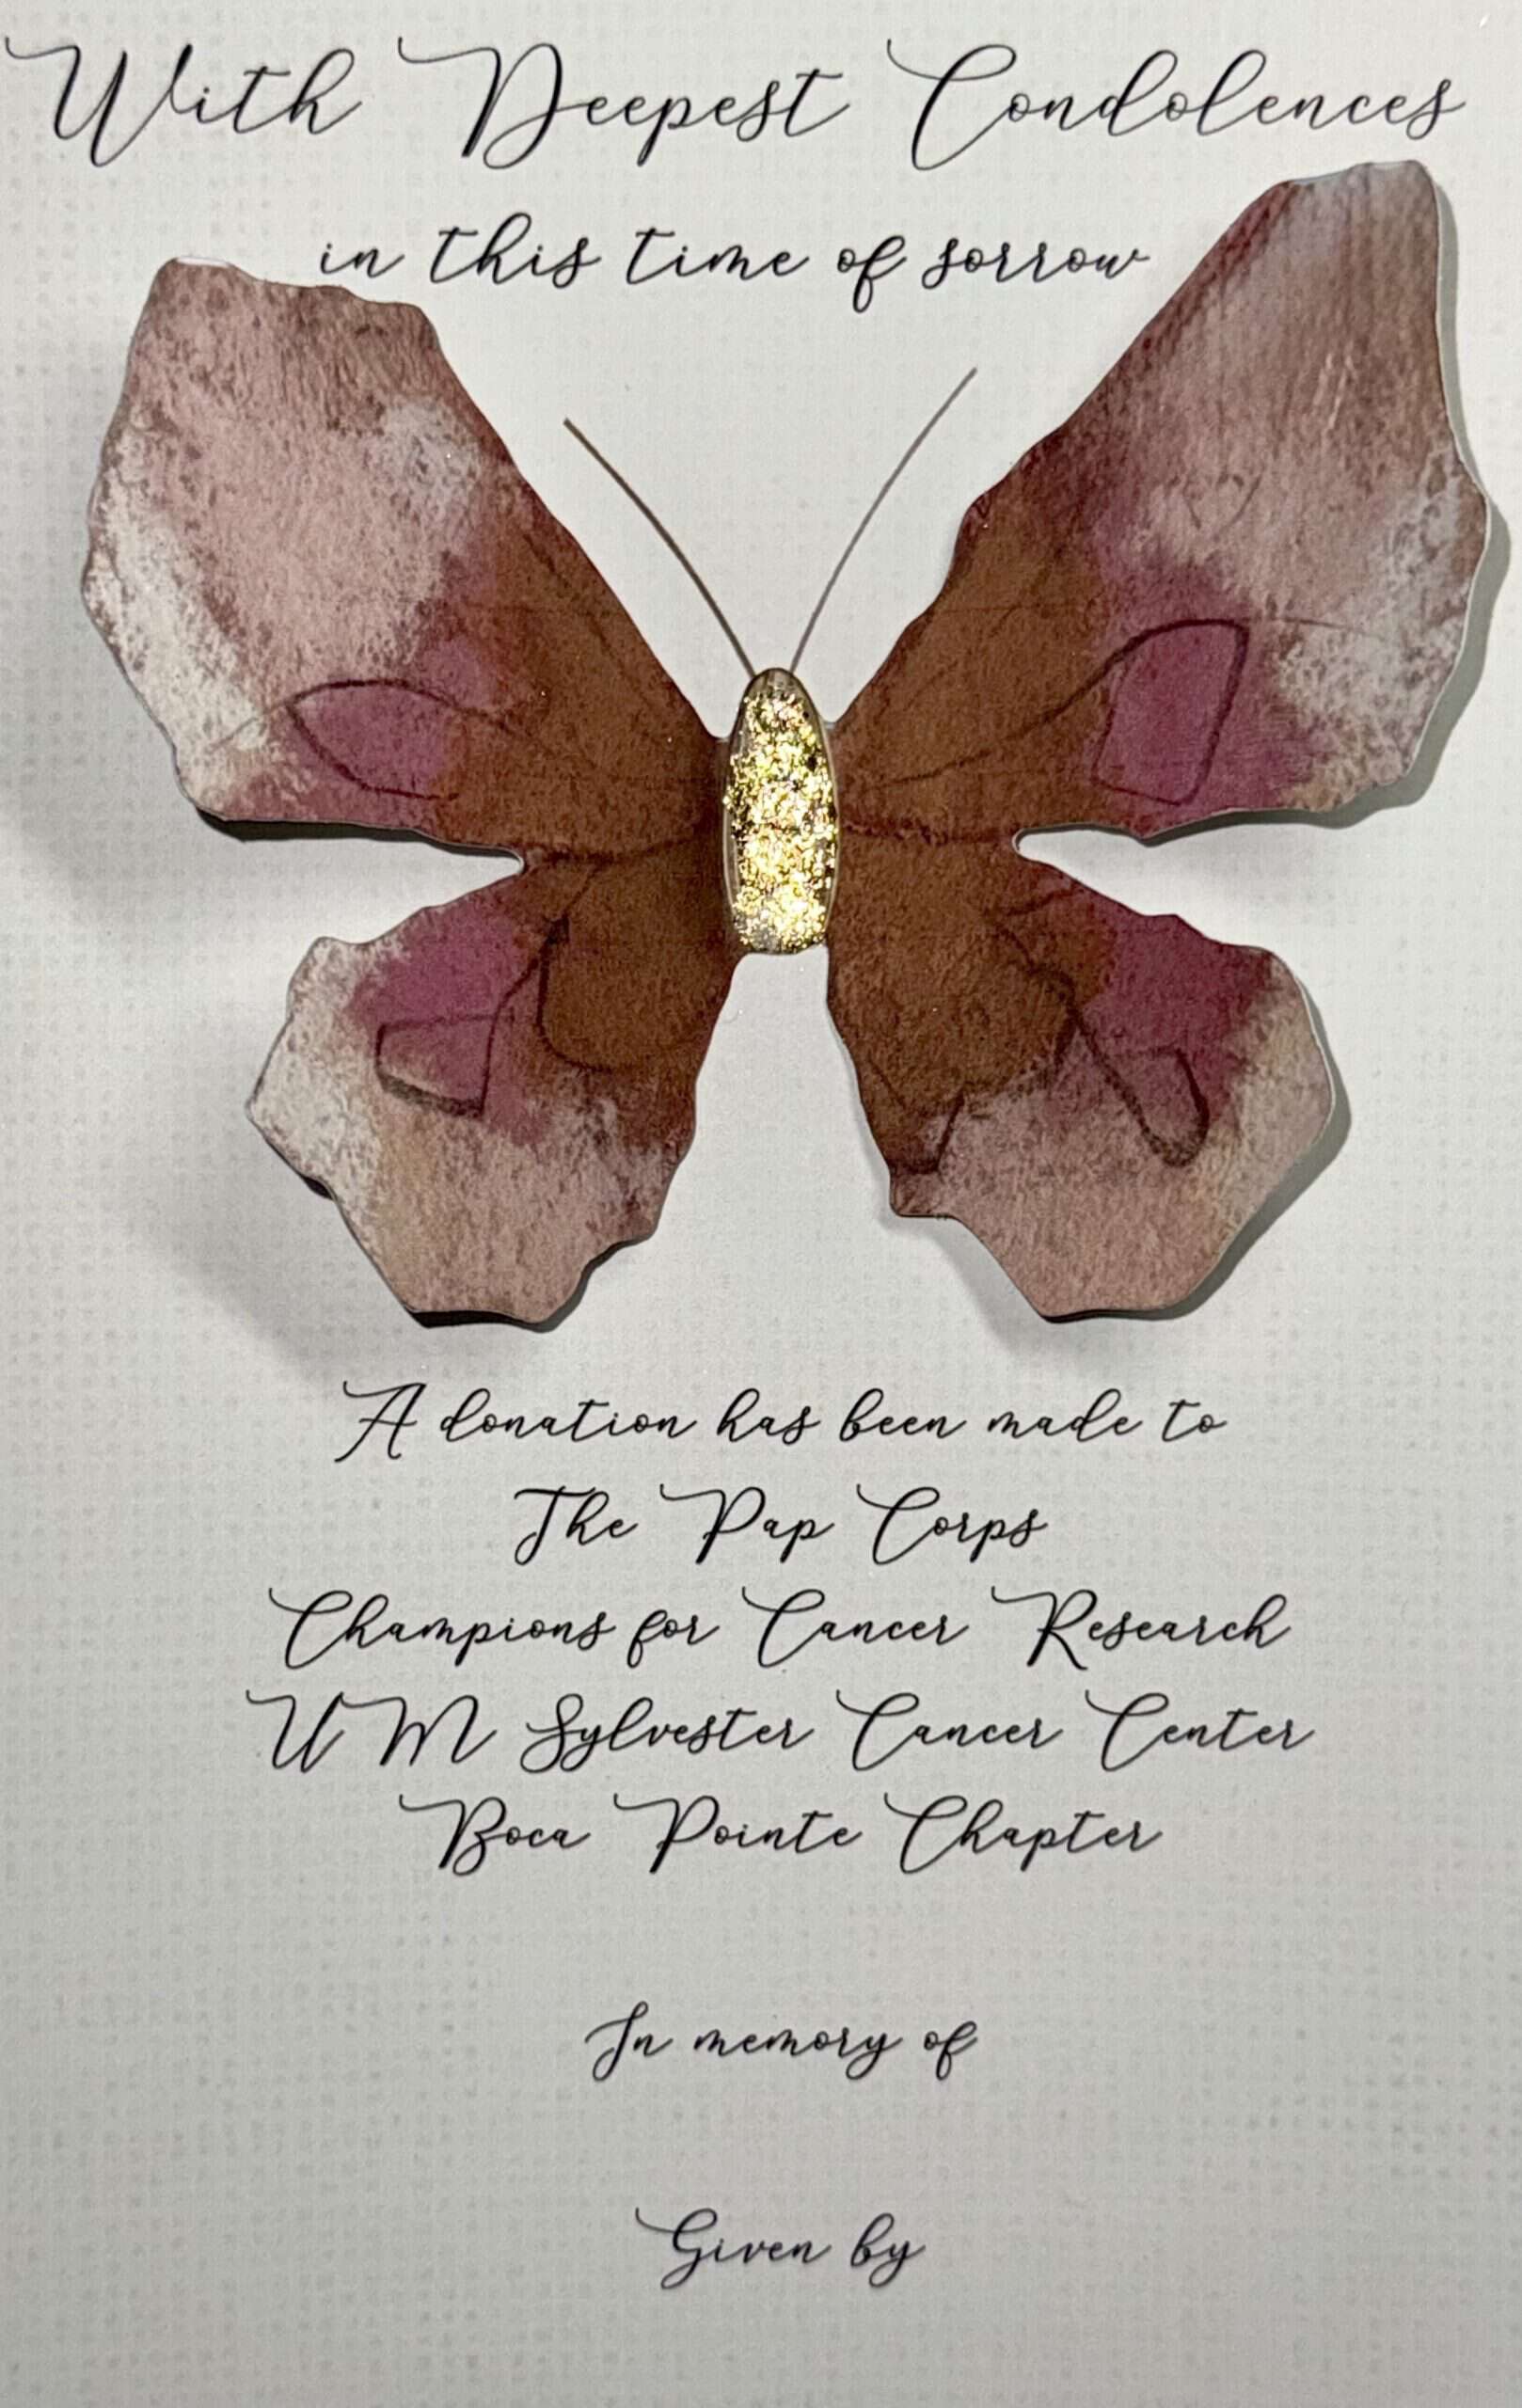 With Deepest Condolences
in this time of sorrow
A donation has been made to
The Pap Corps
Champions for Cancer Research
UM Sylvester Cancer Center
Boca Pointe Chapter
In memory of
Given by